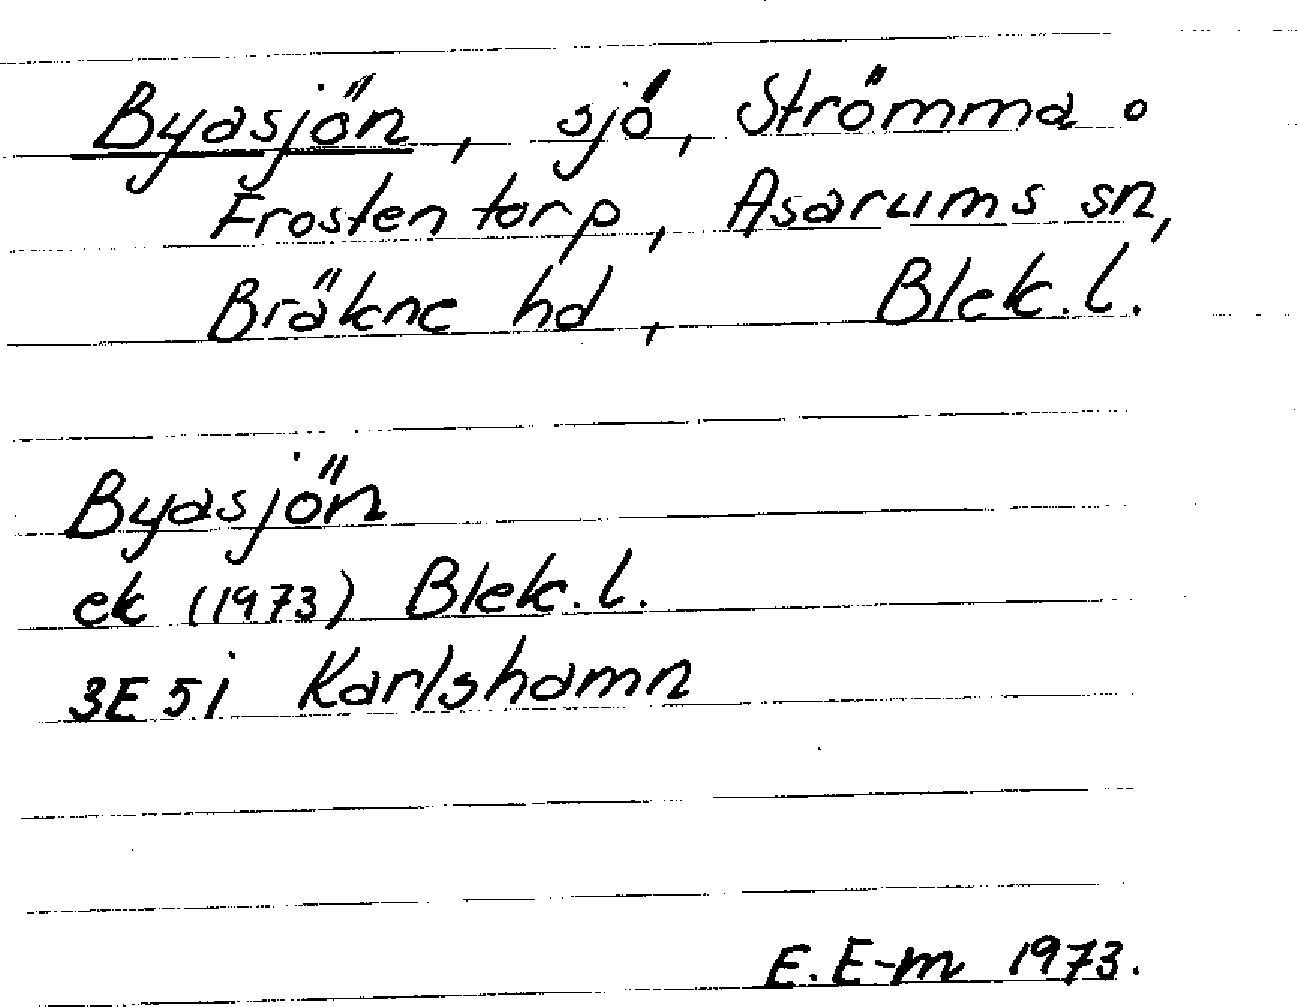 Byasjön, sjö, Strömma o
Frostentorp, Asarums sn,
Bräkne hd, Blek. l.
Byasjön
ek (1973) Blek. l.
3E 5i Karlshamn
E. E-m 1973.